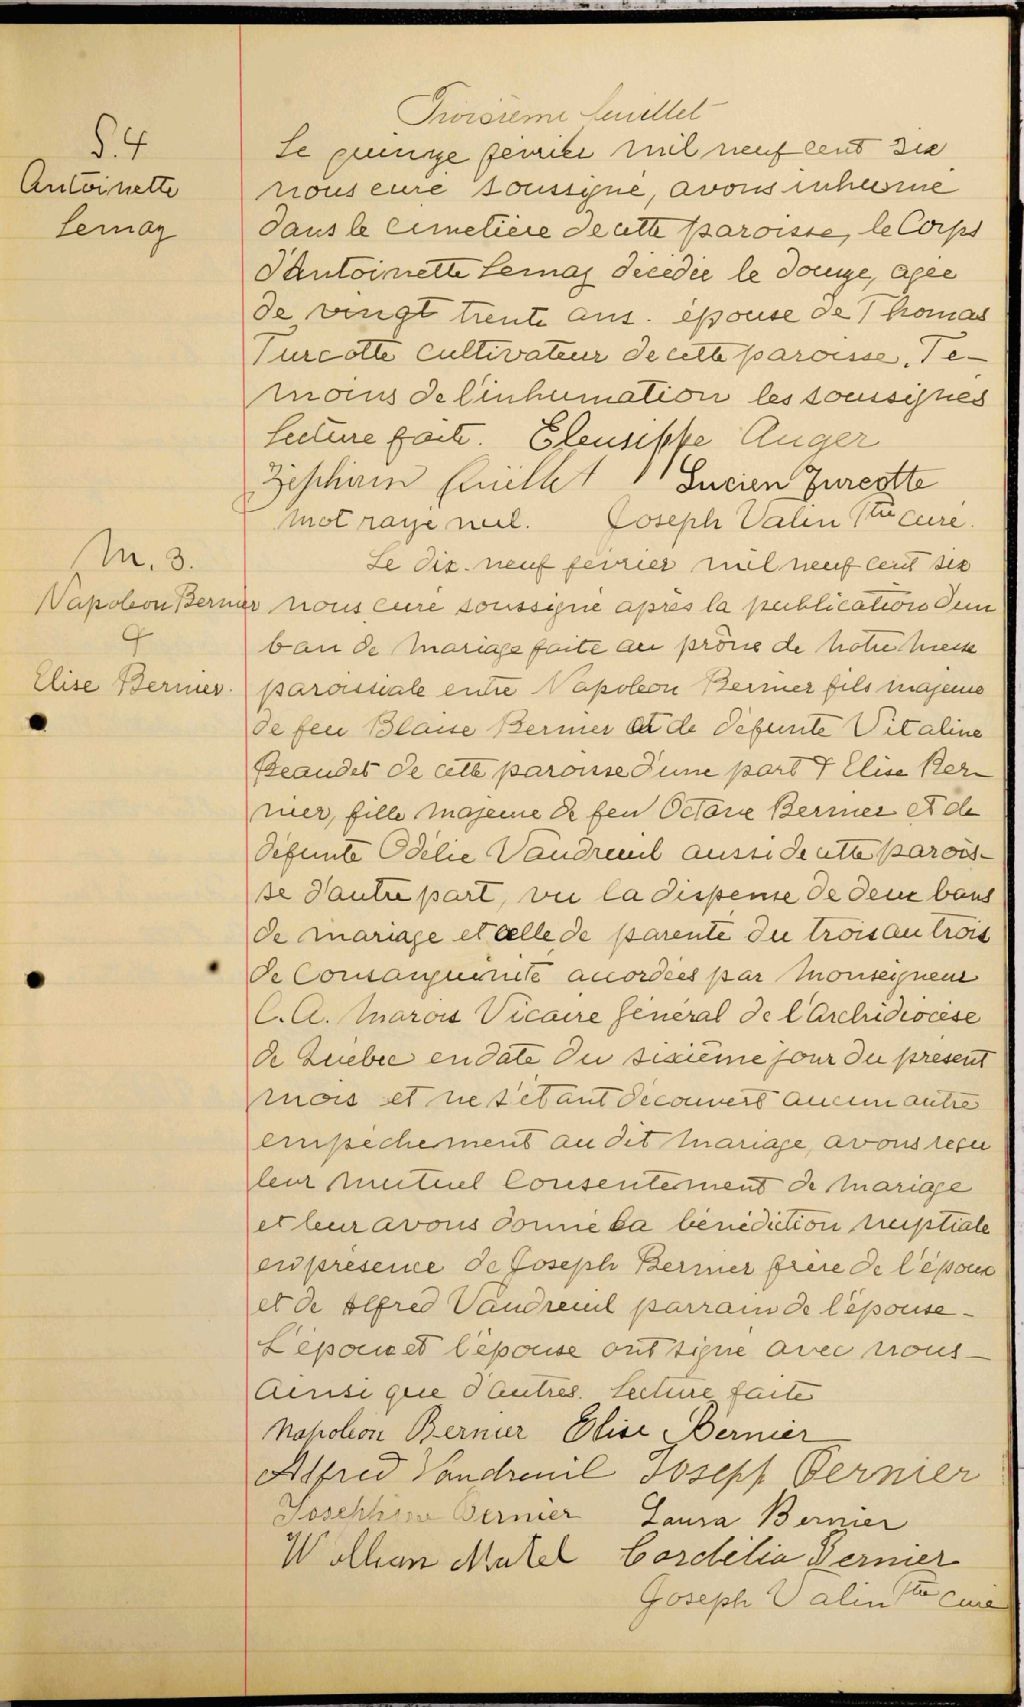 Troisième feuillet
S. 4
Antoinette
Lemay
Le quinze février mil neuf cent six
nous curé soussigné, avons inhumé
dans le cimetière de cette paroisse, le Corps
d'Antoinette Lemay décédée le douze, agée
de vingt trente ans. épouse de Thomas
Turcotte cultivateur de cette paroisse. Te-
moins de l'inhumation les soussignés
Lecture faite. Eleusippe Auger
Zéphirin Lucien Turcotte
Mot rayé nul. Joseph Valin Ptre curé.
M. 3.
Napoleon Bernier
&
Elise Bernier.
Le dix-neuf février mil neuf cent six
nous curé soussigné après la publication d'un
ban de mariage faite au prône de notre messe
paroissiale entre Napoleon Bernier fils majeur
de feu Blaise Bernier et de défunte Vitaline
Beaudet de cette paroisse d'une part & Elise Ber-
nier, fille majeure de feu Octave Bernier et de
défunte Odélie Vaudreuil aussi de cette parois-
se d'autre part, vu la dispense de deux bans
de mariage et celle de parenté du trois au trois
de Consanguinité accordées par Monseigneur
C. A. Marois Vicaire Général de l'Archidiocèse
de Québec en date du sixième jour du présent
mois et ne s'étant découvert aucun autre
empêchement au dit mariage, avons reçu
leur mutuel consentement de mariage
et leur avons donné la bénédiction nuptiale
en présence de Joseph Bernier frère de l'époux
et de Alfred Vaudreuil parrain de l'épouse-
L'époux et l'épouse ont signé avec nous-
ainsi que d'autres. Lecture faite
Napoleon Bernier Elise Bernier
Alfred Vaudreuil Josepf Bernier
Josephine Bernier Laura Bernier
William Matel Cordélia Bernier
Joseph Valin Ptre curé